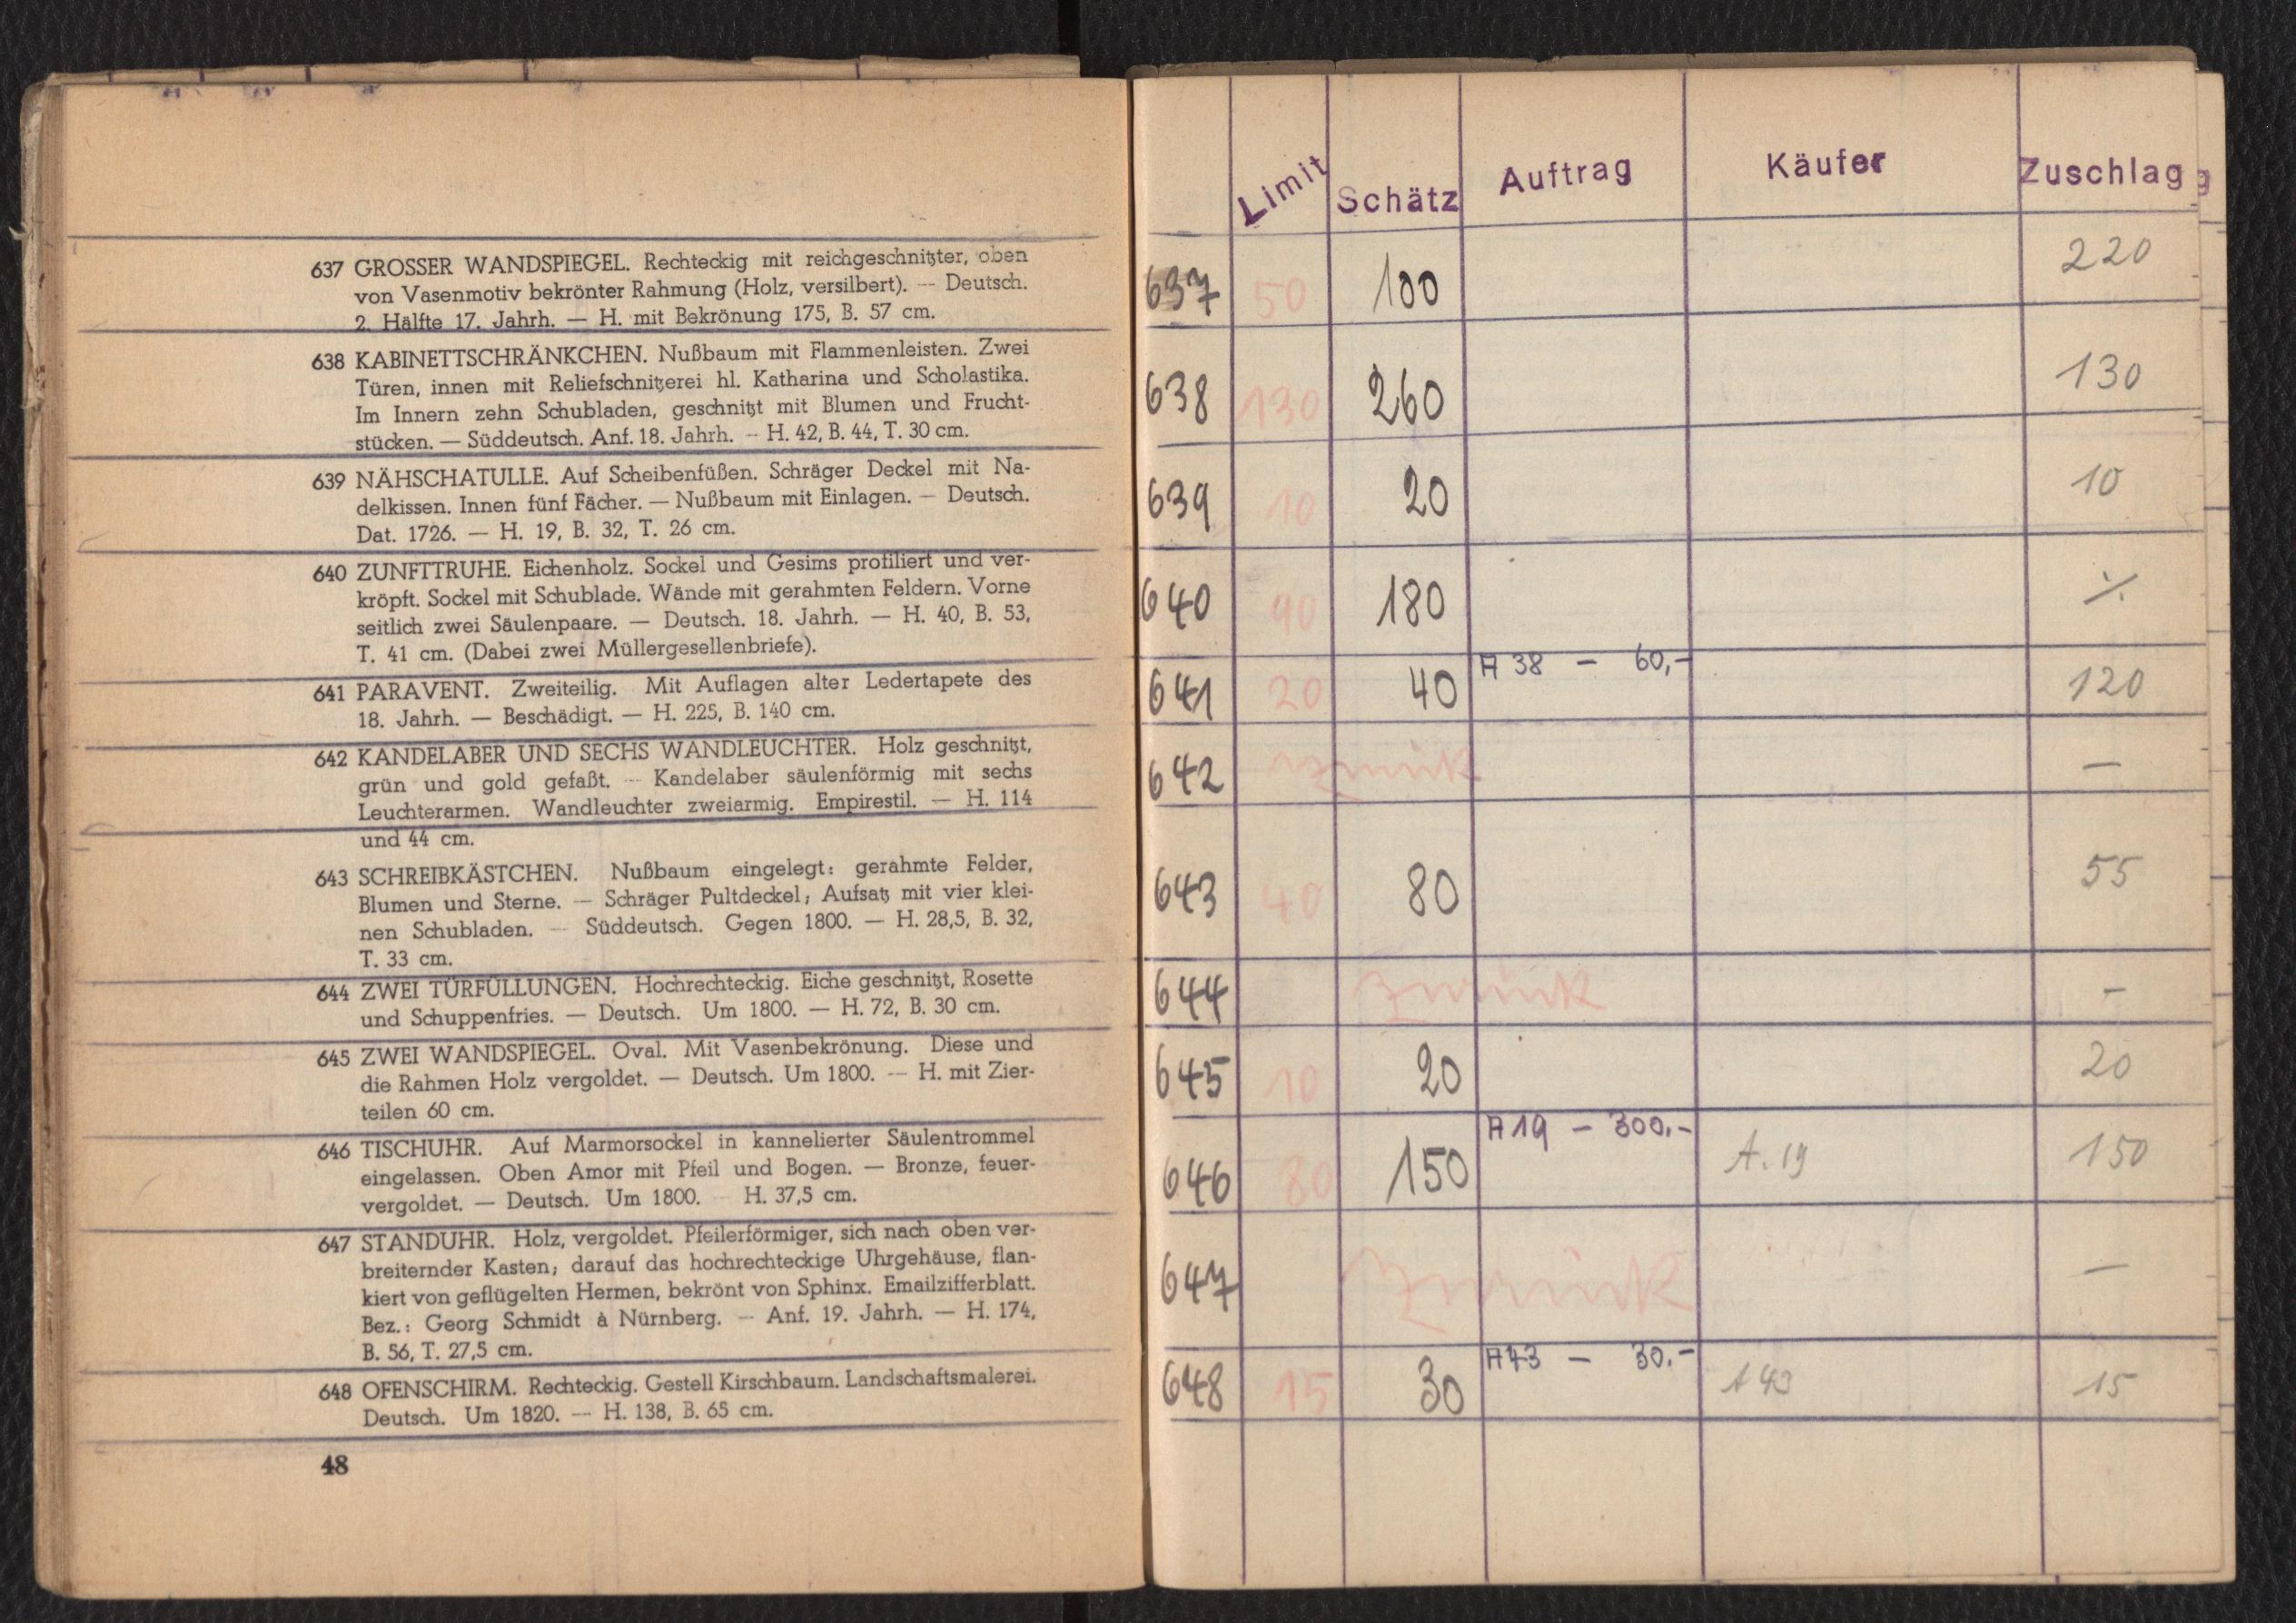 637 GROSSER WANDSPIEGEL. Rechteckig mit reichgeschnitzter, oben
von Vasenmotiv bekrönter Rahmung (Holz, versilbert). — Deutsch.
2. Hälfte 17. Jahrh. — H. mit Bekrönung 175, B. 57 cm.
638 KABINETTSCHRÄNKCHEN. Nußbaum mit Flammenleisten. Zwei
Türen, innen mit Reliefschnitzerei hl. Katharina und Scholastika.
Im Innern zehn Schubladen, geschnitzt mit Blumen und Frucht-
stücken. — Süddeutsch. Anf. 18. Jahrh. — H. 42, B. 44, T. 30 cm.
639 NÄHSCHATULLE. Auf Scheibenfüßen. Schräger Deckel mit Na-
delkissen. Innen fünf Fächer. — Nußbaum mit Einlagen. — Deutsch.
Dat. 1726. — H. 19, B. 32, T. 26 cm.
640 ZUNFTTRUHE. Eichenholz. Sockel und Gesims profiliert und ver-
kröpft. Sockel mit Schublade. Wände mit gerahmten Feldern. Vorne
seitlich zwei Säulenpaare. — Deutsch. 18. Jahrh. — H. 40, B. 53,
T. 41 cm. (Dabei zwei Müllergesellenbriefe).
641 PARAVENT. Zweiteilig. Mit Auflagen alter Ledertapete des
18. Jahrh. — Beschädigt. — H. 225, B. 140 cm.
642 KANDELABER UND SECHS WANDLEUCHTER. Holz geschnitzt,
grün und gold gefaßt. — Kandelaber säulenförmig mit sechs
Leuchterarmen. Wandleuchter zweiarmig. Empirestil. — H. 114
und 44 cm.
643 SCHREIBKÄSTCHEN. Nußbaum eingelegt: gerahmte Felder,
Blumen und Sterne. — Schräger Pultdeckel; Aufsatz mit vier klei-
nen Schubladen. — Süddeutsch. Gegen 1800. — H. 28,5, B. 32,
T. 33 cm.
644 ZWEI TÜRFÜLLUNGEN. Hochrechteckig. Eiche geschnitzt, Rosette
und Schuppenfries. — Deutsch. Um 1800. — H. 72, B. 30 cm.
645 ZWEI WANDSPIEGEL. Oval. Mit Vasenbekrönung. Diese und
die Rahmen Holz vergoldet. — Deutsch. Um 1800. — H. mit Zier-
teilen 60 cm.
646 TISCHUHR. Auf Marmorsockel in kannelierter Säulentrommel
eingelassen. Oben Amor mit Pfeil und Bogen. — Bronze, feuer-
vergoldet. — Deutsch. Um 1800. — H. 37,5 cm.
647 STANDUHR. Holz, vergoldet. Pfeilerförmiger, sich nach oben ver-
breiternder Kasten; darauf das hochrechteckige Uhrgehäuse, flan-
kiert von geflügelten Hermen, bekrönt von Sphinx. Emailzifferblatt.
Bez.: Georg Schmidt à Nürnberg. — Anf. 19. Jahrh. — H. 174,
B. 56, T. 27,5 cm.
648 OFENSCHIRM. Rechteckig. Gestell Kirschbaum. Landschaftsmalerei.
Deutsch. Um 1820. — H. 138, B. 65 cm.
48
Limit Schätz Auftrag Käufer Zuschlag g
637 50 100 220
638 130 260 130
639 10 20 10
640 90 180 ·/.
641 20 40 A 38 — 60,- 120
642 zurück —
643 40 80 55
644 zurück —
645 10 20 20
646 80 150 A 19 — 300.- A. 19 150
647 zurück —
648 15 30 A 43 — 30.- A 43 15